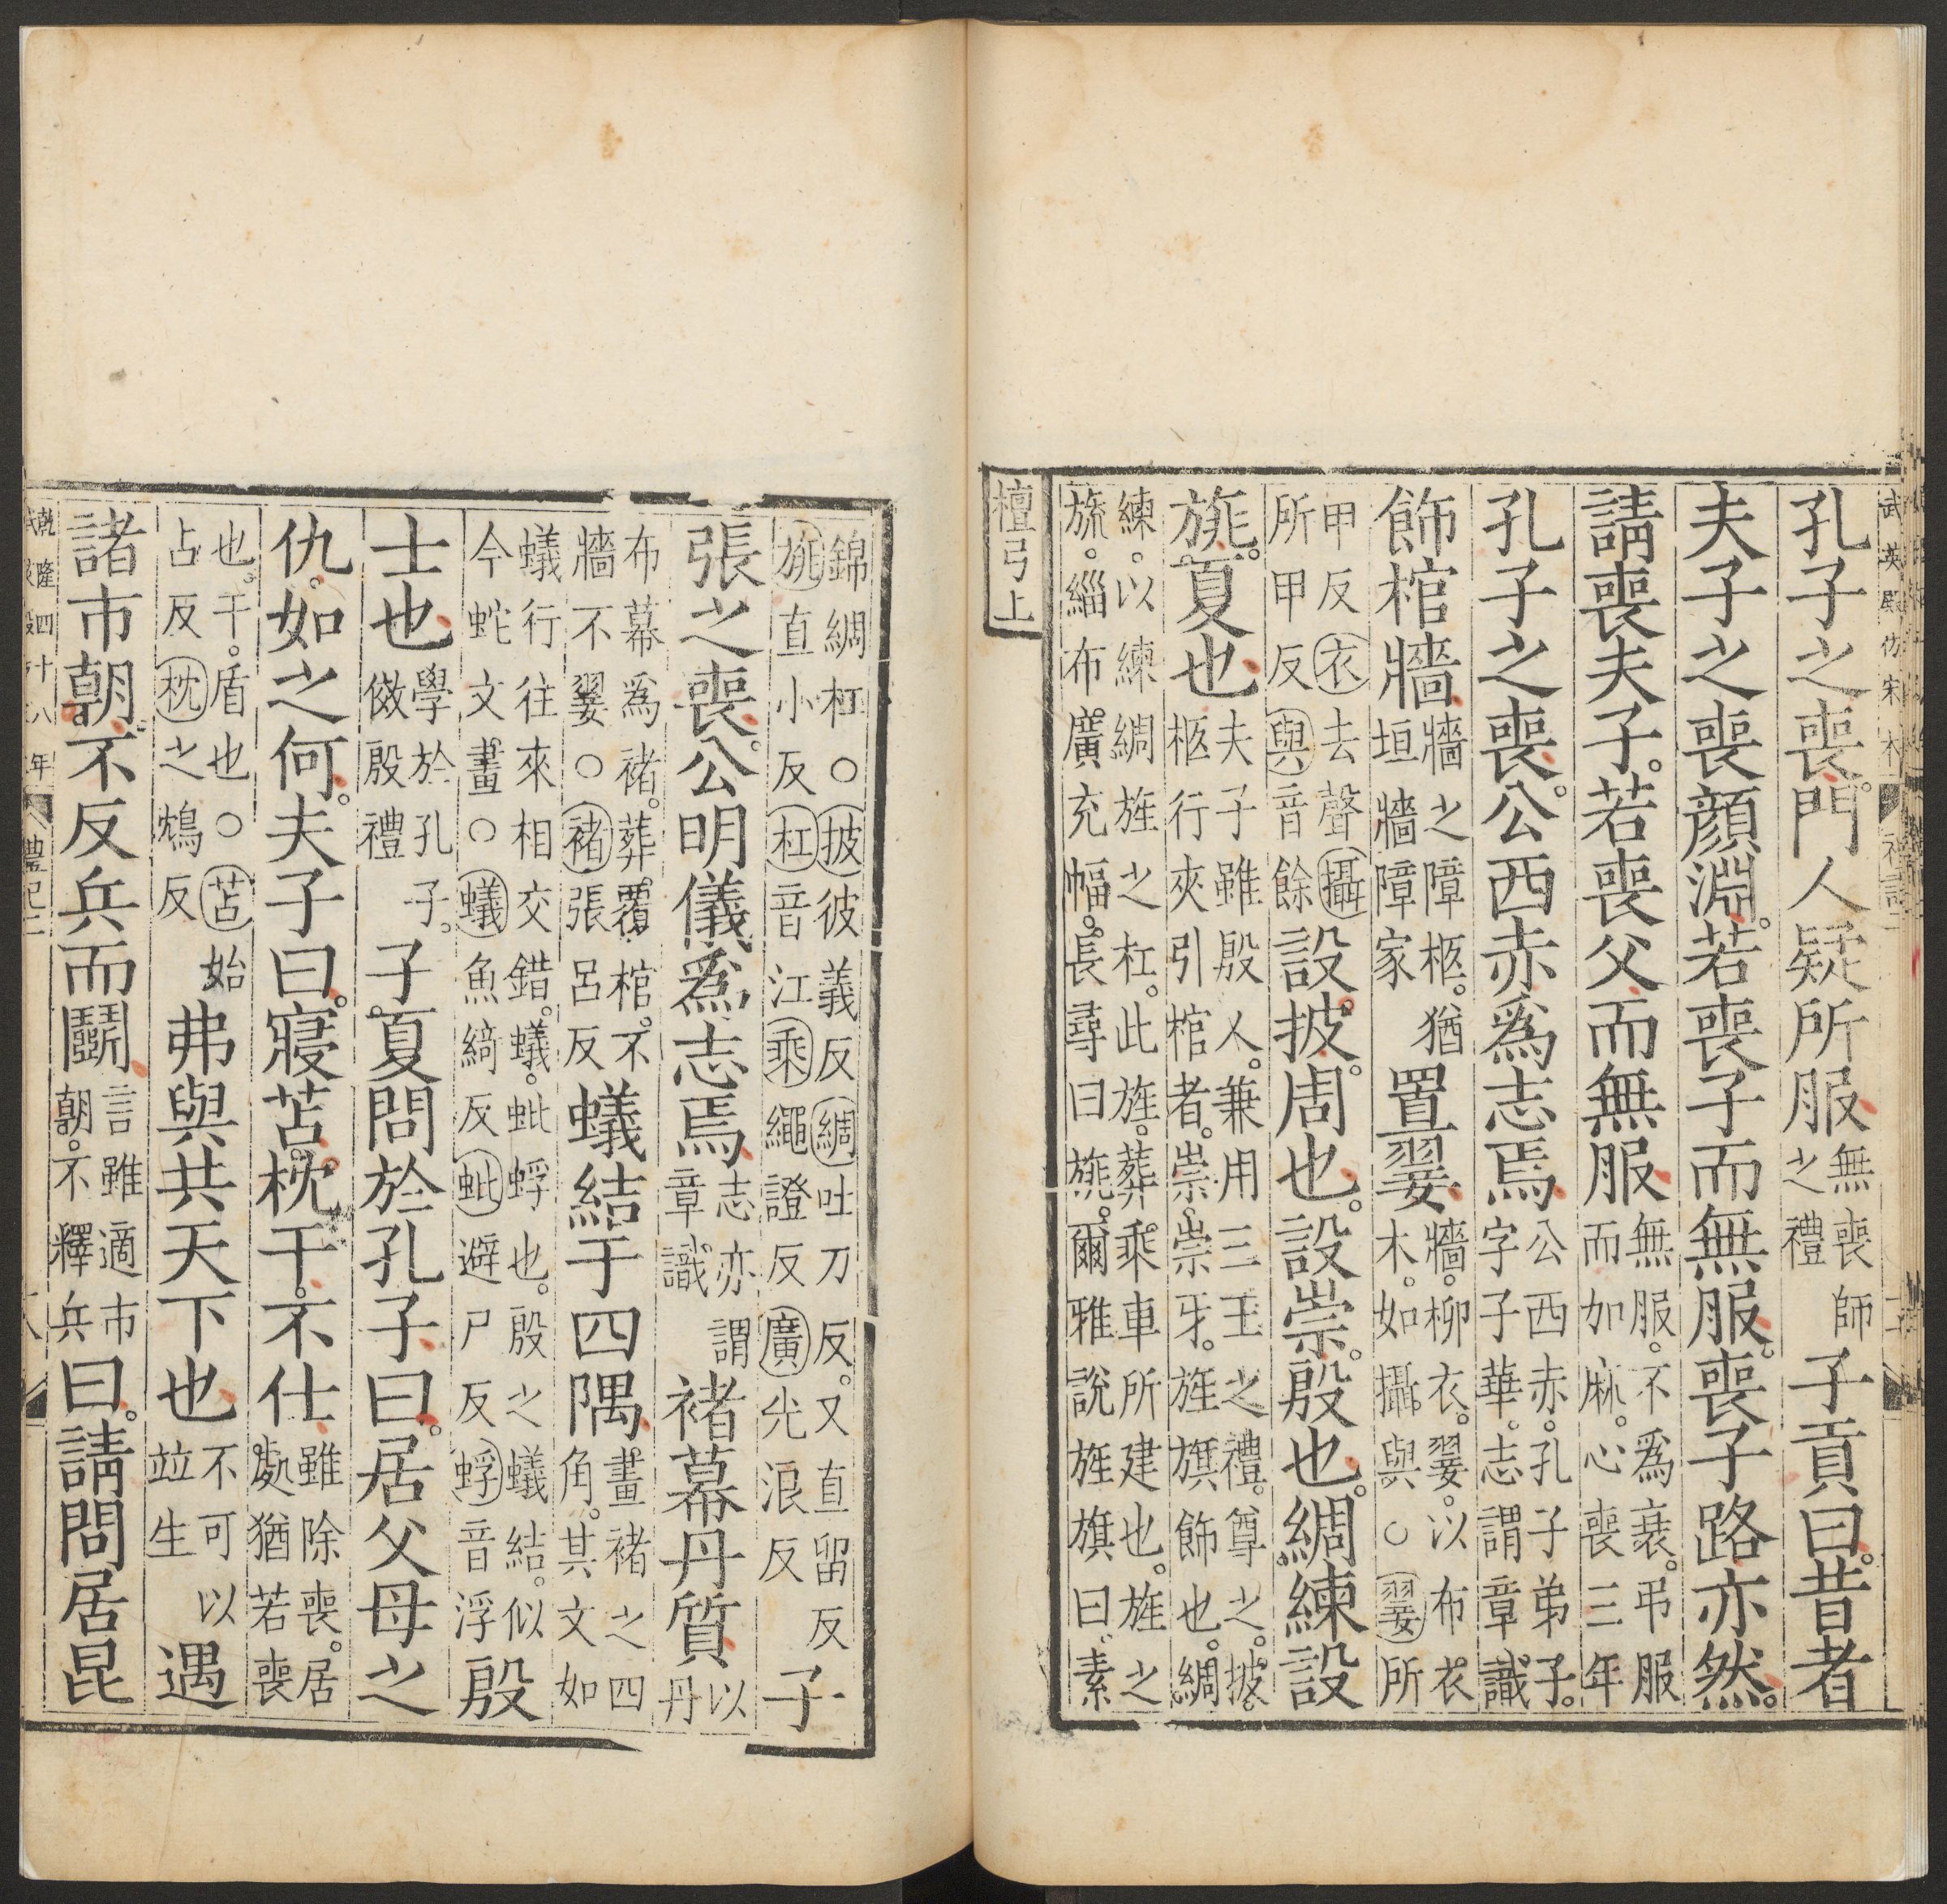 武英殿仿宋本
孔子之喪。門人疑所服無喪師之禮子貢曰。昔者
夫子之喪顏淵。若喪子而無服。喪子路亦然。
請喪夫子。若喪父而無服無服。不爲衰。弔服而加麻。心喪三年
孔子之喪。公西赤爲志焉公西赤。孔子弟子。字子華。志謂章識
飾棺牆牆之障柩。猶垣牆障家置翣牆。柳衣。翣。以布衣木。如攝與○翣所
甲反衣去聲攝所甲反與音餘設披。周也。設崇。殷也。綢練設
旐。夏也夫子雖殷人。兼用三王之禮。尊之。披。柩行夾引棺者。崇。崇牙。旌旗飾也。綢
練。以練綢旌之杠。此旌。葬乘車所建也。旌之旒。緇布廣充幅。長尋曰旐。爾雅說旌旗曰。素
檀弓上
錦綢杠○披彼義反綢吐刀反。又直留反旐直小反杠音江乘繩證反廣光浪反子
張之喪。公明儀爲志焉志亦謂章識褚幕丹質以丹
布幕爲褚。葬覆棺。不牆不翣○褚張呂反蟻結于四隅畫褚之四角。其文如
蟻行往來相交錯。蟻。蚍蜉也。殷之蟻結。似今蛇文畫○蟻魚綺反蚍避尸反蜉音浮殷
士也學於孔子。傚殷禮子夏問於孔子曰。居父母之
仇。如之何。夫子曰。寢苫。枕干。不仕雖除喪。居處猶若喪
也。干。盾也○苫始占反枕之鴆反弗與共天下也不可以並生遇
諸市朝。不反兵而鬭言雖適市朝。不釋兵曰。請問居昆
乾隆四十八年
禮記二